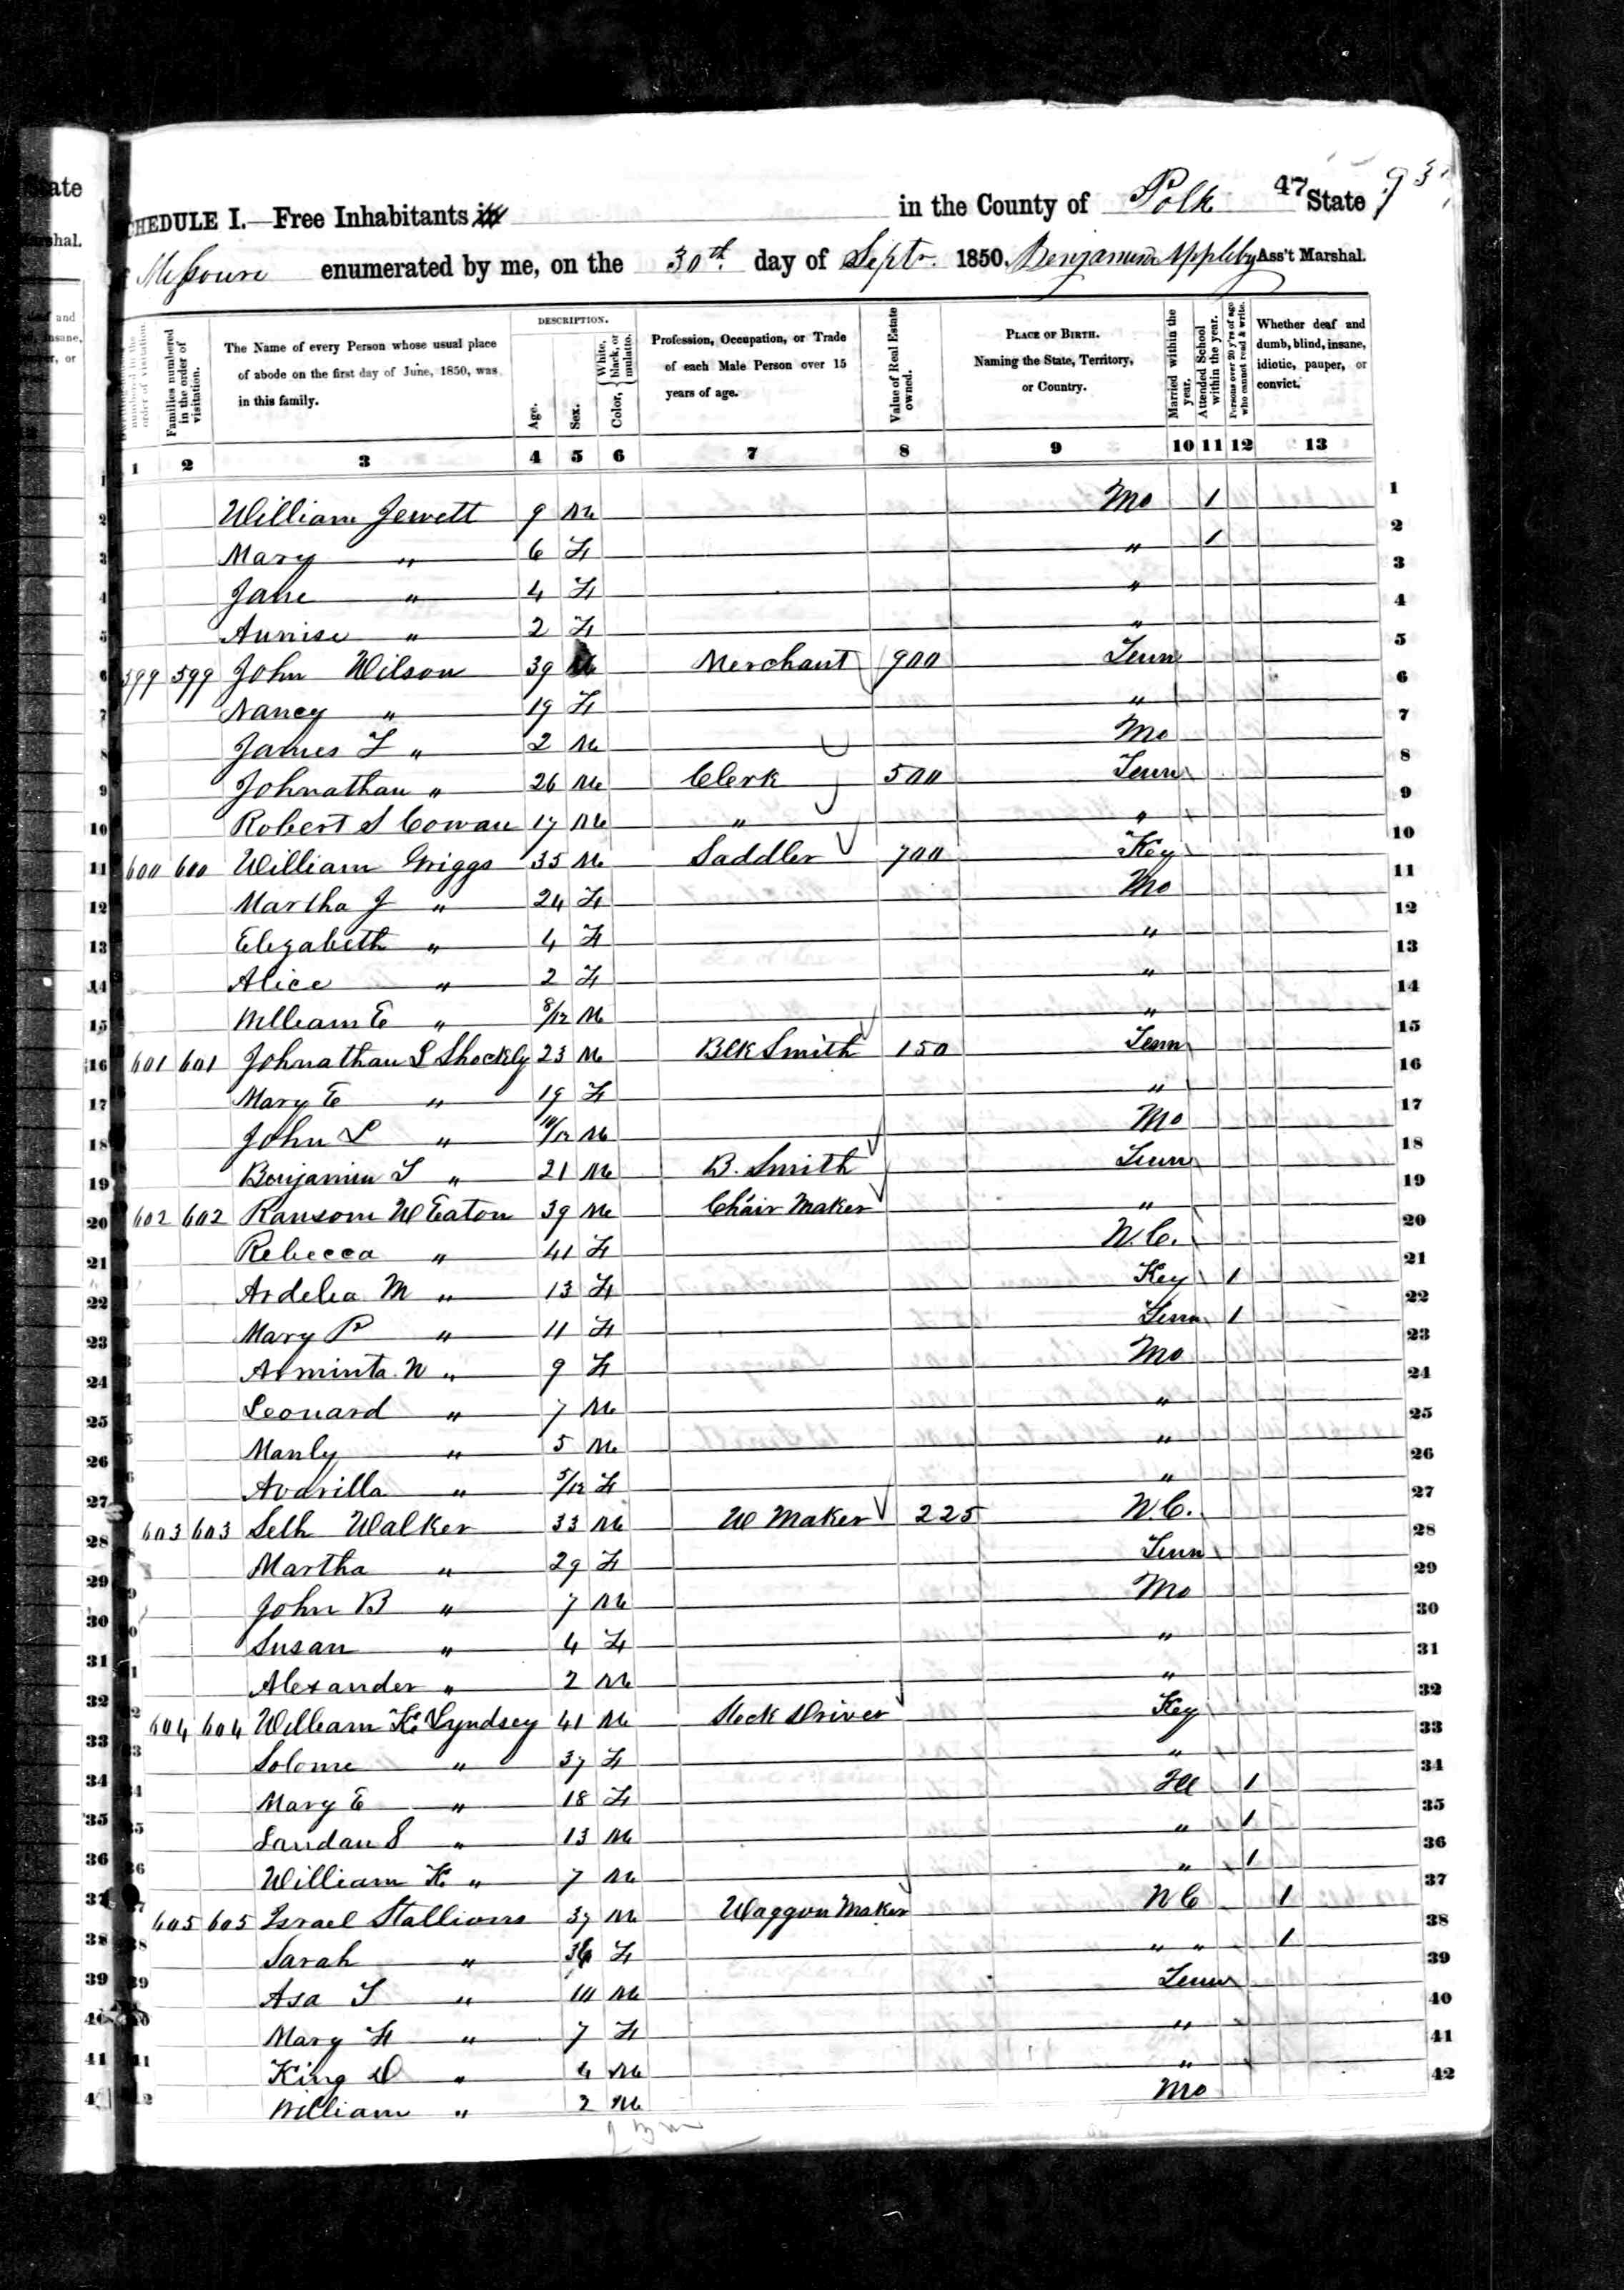 State 47 93
SCHEDULE I.—Free Inhabitants in in the County of Polk State
of Missouri enumerated by me, on the 30th day of Septr. 1850. Benjamin Appleby Ass't Marshal.
DESCRIPTION.
Families numbered in the order of visitation.
The Name of every Person whose usual place of abode on the first day of June, 1850, was in this family.
Age.
Sex.
Color, { White, black, or mulatto.
Profession, Occupation, or Trade of each Male Person over 15 years of age.
Value of Real Estate owned.
PLACE OF BIRTH. Naming the State, Territory, or Country.
Married within the year.
Attended School within the year.
Persons over 20 y'rs of age who cannot read & write.
Whether deaf and dumb, blind, insane, idiotic, pauper, or convict.
1 2 3 4 5 6 7 8 9 10 11 12 13
1 William Jewett 9 M Mo 1
2 Mary " 6 F " 1
3 Jane " 4 F "
4 Aunise " 2 F "
5 599 599 John Wilson 39 M Merchant 900 Tenn
6 Nancy " 19 F "
7 James F " 2 M Mo
8 Johnathan " 26 M Clerk 500 Tenn
9 Robert S Cowan 17 M " "
10 600 600 William Griggs 35 M Saddler 700 Key
11 Martha J " 24 F Mo
12 Elizabeth " 4 F "
13 Alice " 2 F "
14 William E " 8/12 M "
15 601 601 Johnathan L Shockly 23 M Blk Smith 150 Tenn
16 Mary E " 19 F "
17 John L " 10/12 M Mo
18 Benjamin T " 21 M B. Smith Tenn
19 602 602 Ransom W Eaton 39 M Chair Maker "
20 Rebecca " 41 F N.C.
21 Ardelia M " 13 F Key 1
22 Mary P " 11 F Tenn 1
23 Arminta N " 9 F Mo
24 Leonard " 7 M "
25 Manly " 5 M "
26 Avarilla " 5/12 F "
27 603 603 Seth Walker 33 M W Maker 225 N.C.
28 Martha " 29 F Tenn
29 John B " 7 M Mo
30 Susan " 4 F "
31 Alexander " 2 M "
32 604 604 William K Lyndsey 41 M Stock Driver Key
33 Solome " 37 F "
34 Mary E " 18 F Ill 1
35 Landan S " 13 M " 1
36 William K " 7 M " 1
37 605 605 Israel Stallions 37 M Waggon Maker N C 1
38 Sarah " 36 F " " 1
39 Asa T " 10 M Tenn
40 Mary F " 7 F "
41 King D " 4 M "
42 William " 2 M Mo